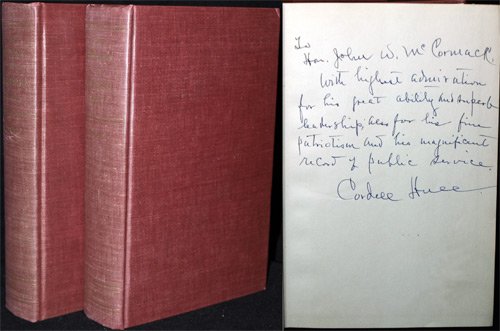 To
Hon. John W. McCormack.
With highest admiration
for his great ability and superb
leadership; also for his fine
patriotism and his magnificent
record of public service.
Cordell Hull